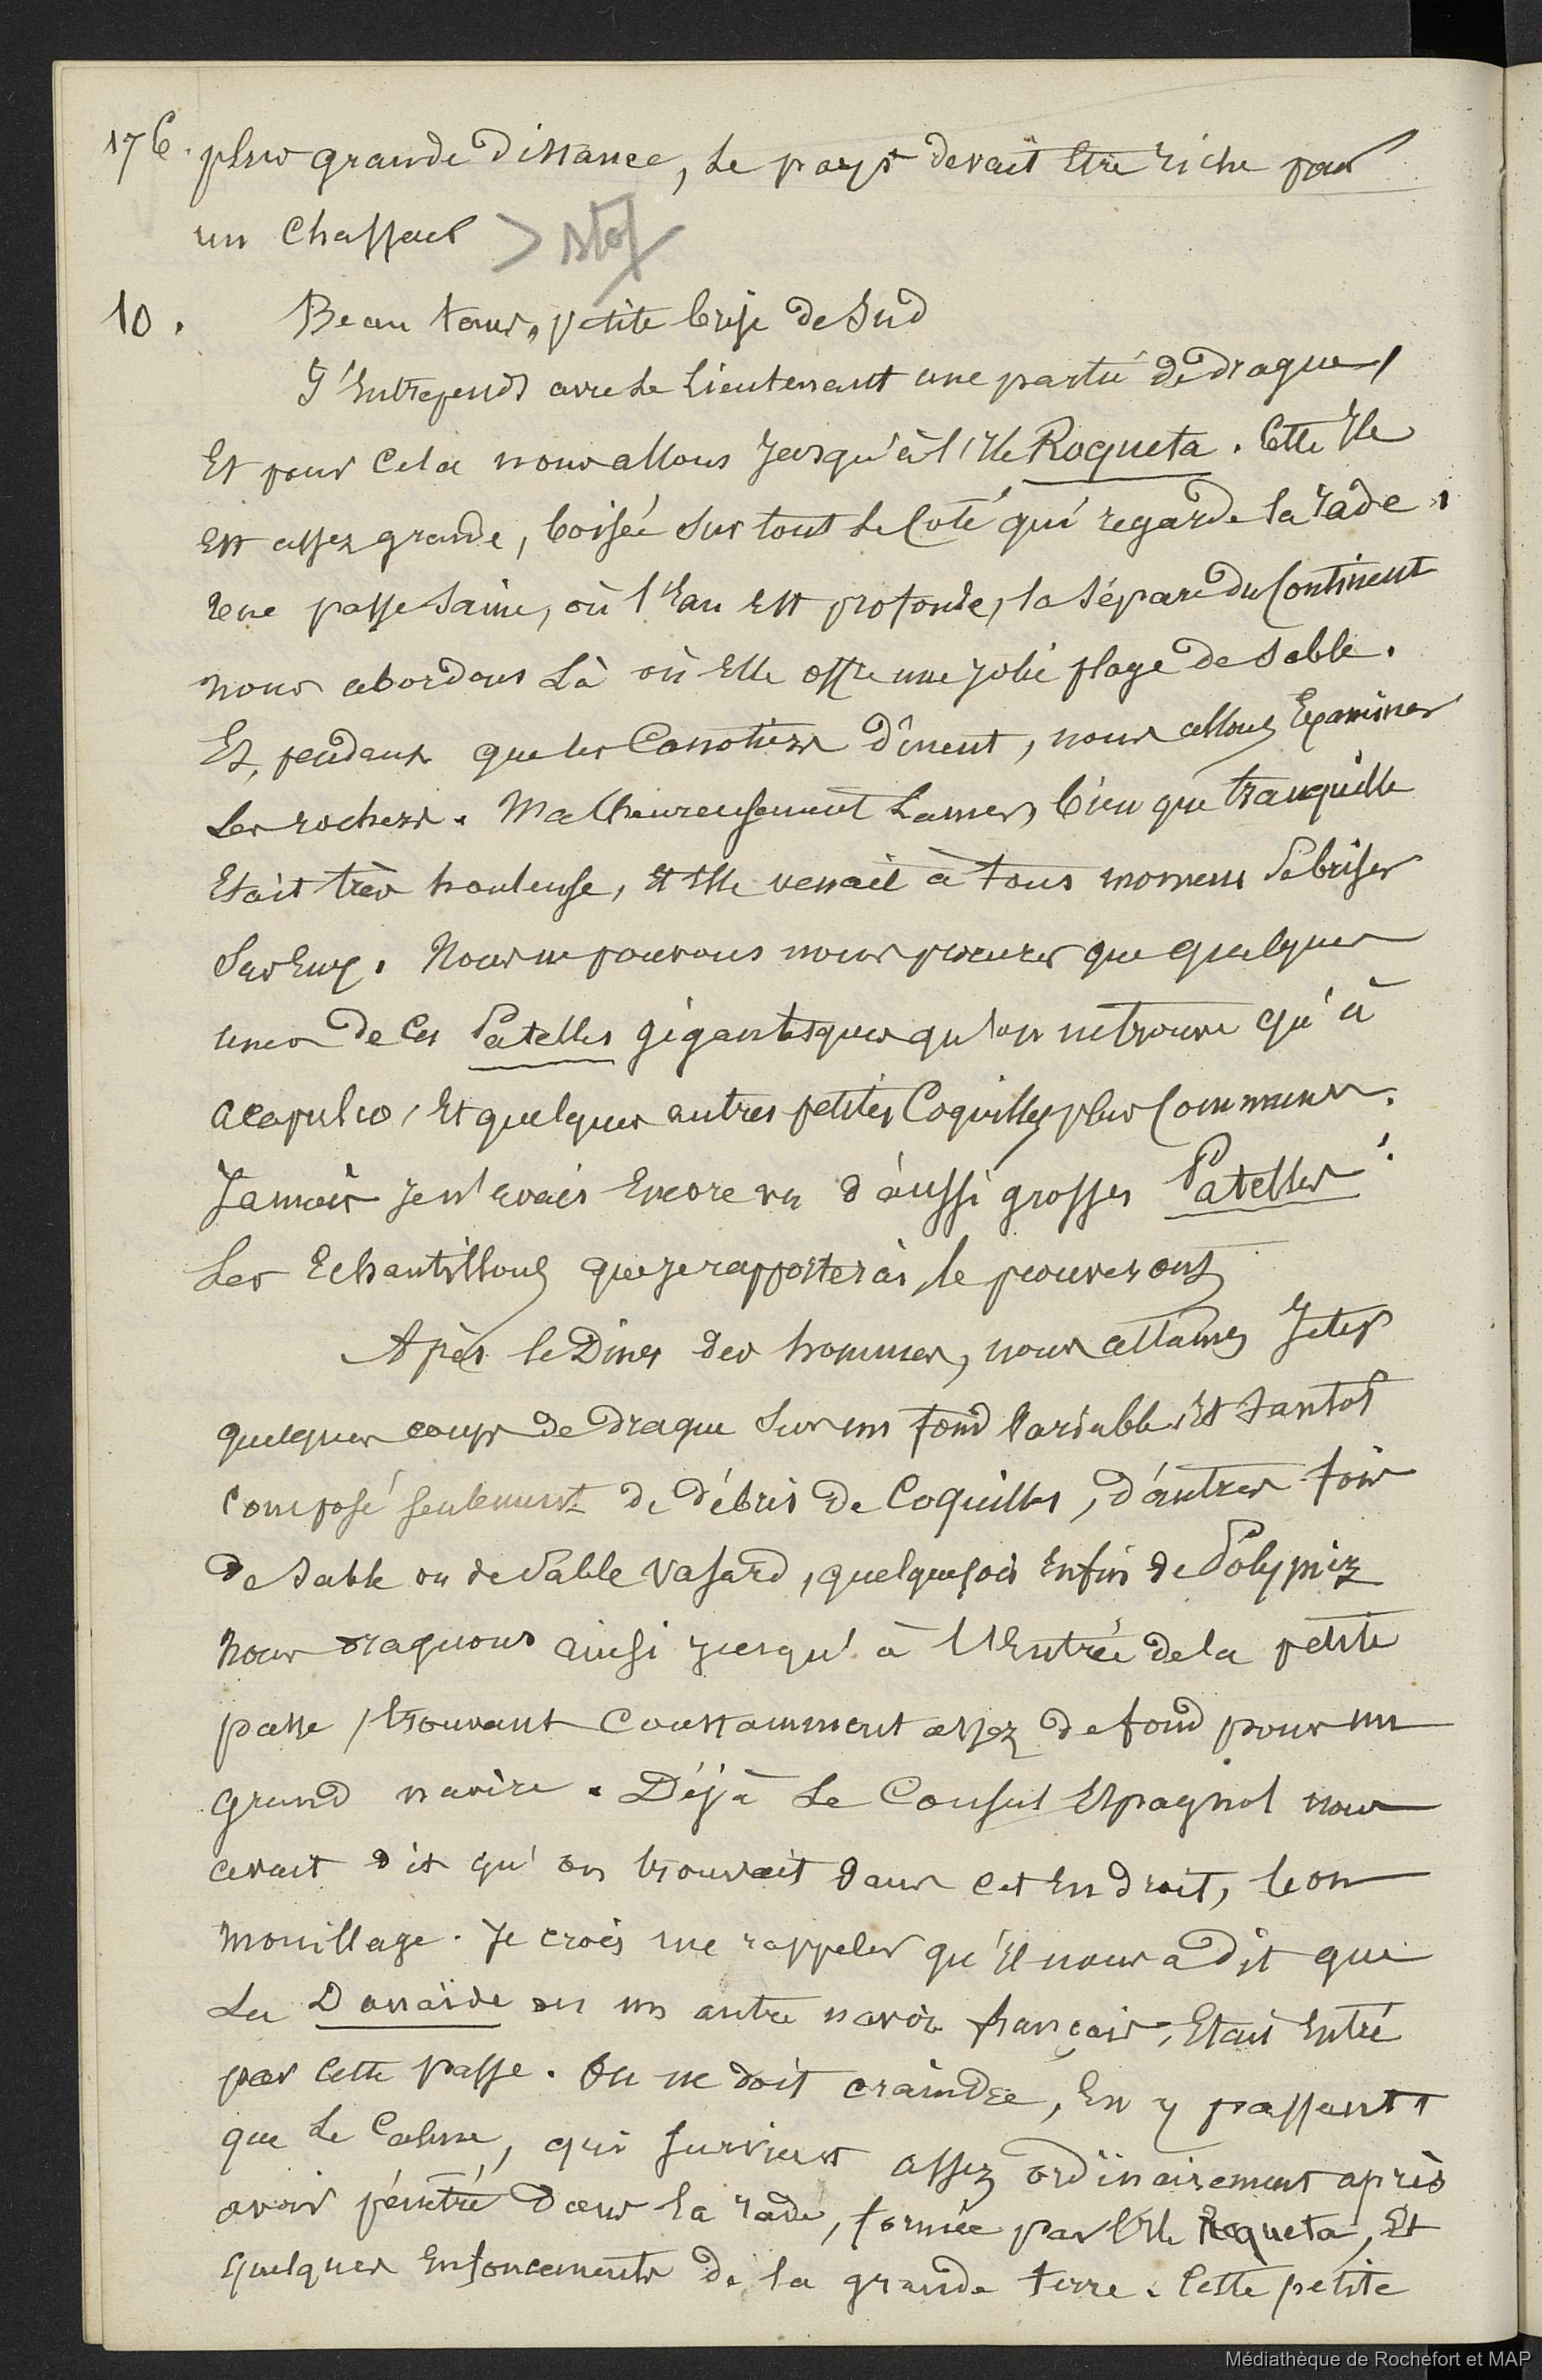 176. plus grande distance, le pays devait être riche pour
un chasseur > stop
10. Beau temps, petite brise de Sud
J'entreprends avec le Lieutenant une partie de drague,
Et pour cela nous allons jusqu'à l'Ile Roqueta. Cette Ile
Est assez grande, boisée sur tout le coté qui regarde la rade.
Une passe saine, où l'Eau Est profonde, la sépare du Continent
nous abordons là où Elle offre une jolie plage de sable.
Et, pendant que les Canotiers dinent, nous allons Examiner
les rochers. Malheureusement la mer, bien que tranquille
Etait très houleuse, et Elle venait à tous momens se briser
sur Eux. Nous ne pouvons nous procurer que quelques
unes de ces Patelles gigantesques qu'on ne trouve qu'à
acapulco, Et quelques autres petites Coquilles plus Communes.
Jamais je n'avais Encore vu d'aussi grosses Patelles.
Les Echantillons que je rapporterai, le prouveront
Après le Diner des hommes, nous allames Jeter
quelques coups de drague sur un fond variable, Et tantot
composé seulement de débris de Coquilles, d'autres fois
de sable ou de sable vasard, quelquefois Enfin de Polypiez
Nous draguons ainsi jusqu'à l'Entrée de la petite
passe, trouvant constamment assez de fond pour un
grand navire. Déjà le Consul Espagnol nous
avait dit qu'on trouvait dans cet Endroit, bon
mouillage. Je crois me rappeler qu'il nous a dit que
La Danaïde ou un autre navire français, Etait Entré
par cette passe. On ne doit craindre, En y passant
que le Calme, qui survient assez ordinairement après
avoir pénétré dans la rade, formée par l'Ile Roqueta, Et
quelques Enfoncements de la grande terre. Cette petite
Médiathèque de Rochefort et MAP